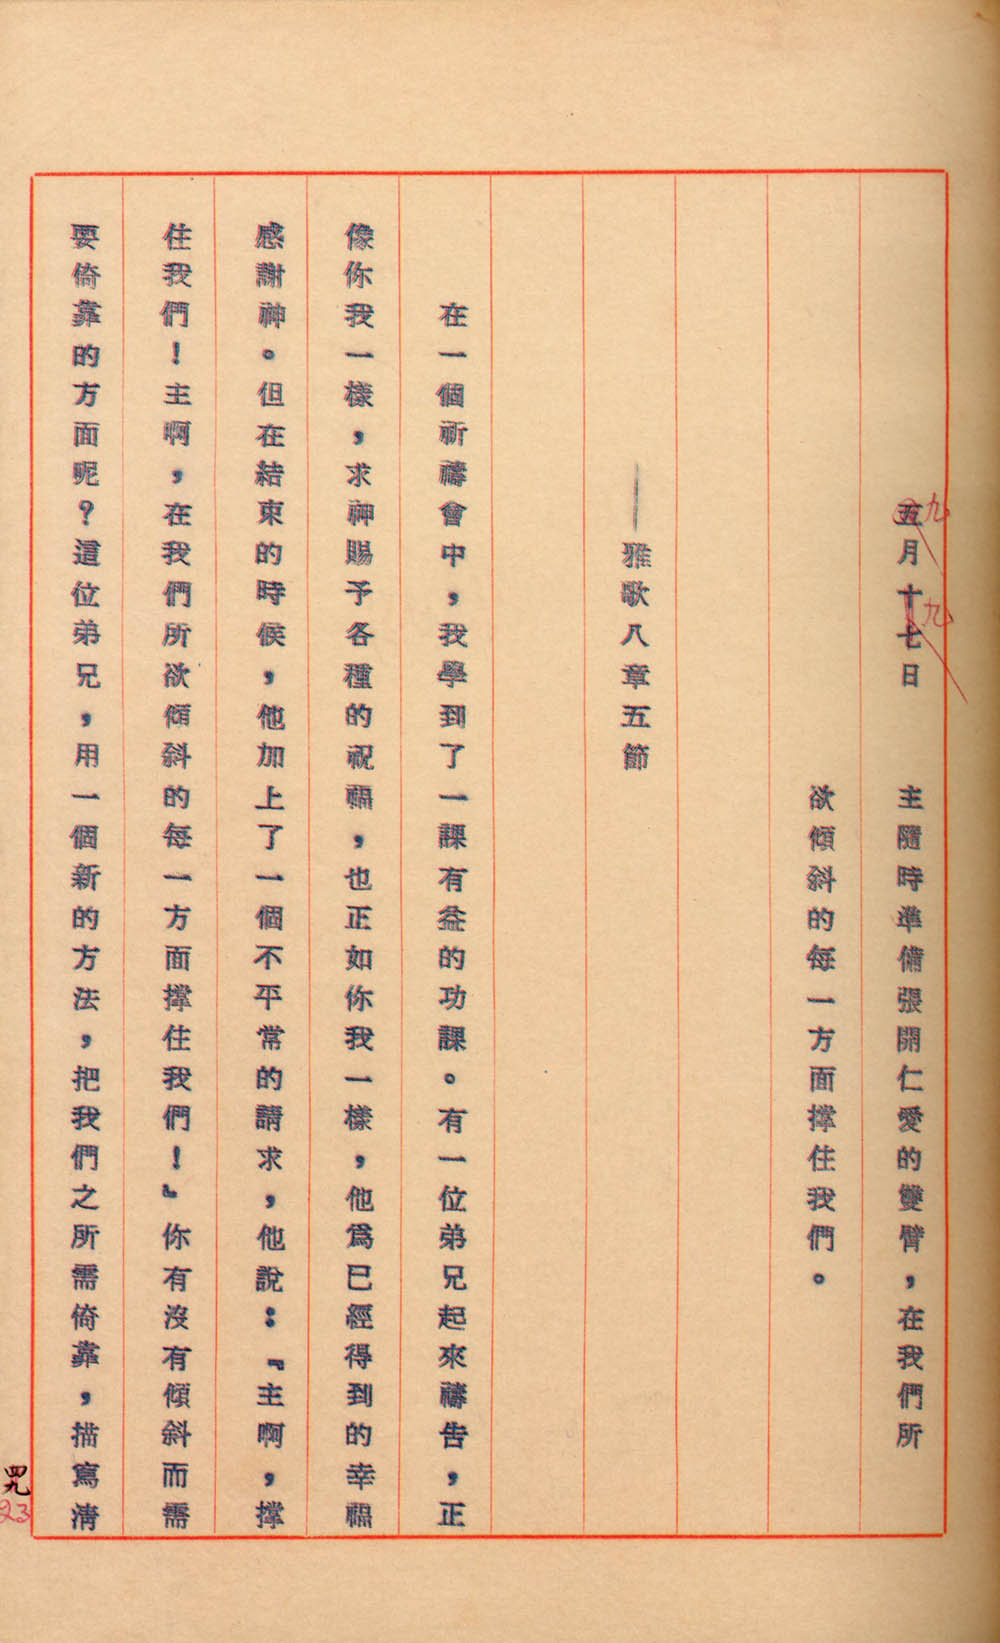 五月十七日　主隨時準備張開仁愛的雙臂，在我們所
九
九
欲傾斜的每一方面撑住我們。
——雅歌八章五節
在一個祈禱會中，我學到了一課有益的功課。有一位弟兄起來禱告，正
像你我一樣，求神賜予各種的祝福，也正如你我一樣，他爲已經得到的幸福
感謝神。但在結束的時候，他加上了一個不平常的請求，他說：『主啊，撑
住我們！主啊，在我們所欲傾斜的每一方面撑住我們！』你有沒有傾斜而需
要倚靠的方面呢？這位弟兄，用一個新的方法，把我們之所需倚靠，描寫淸
四九
23